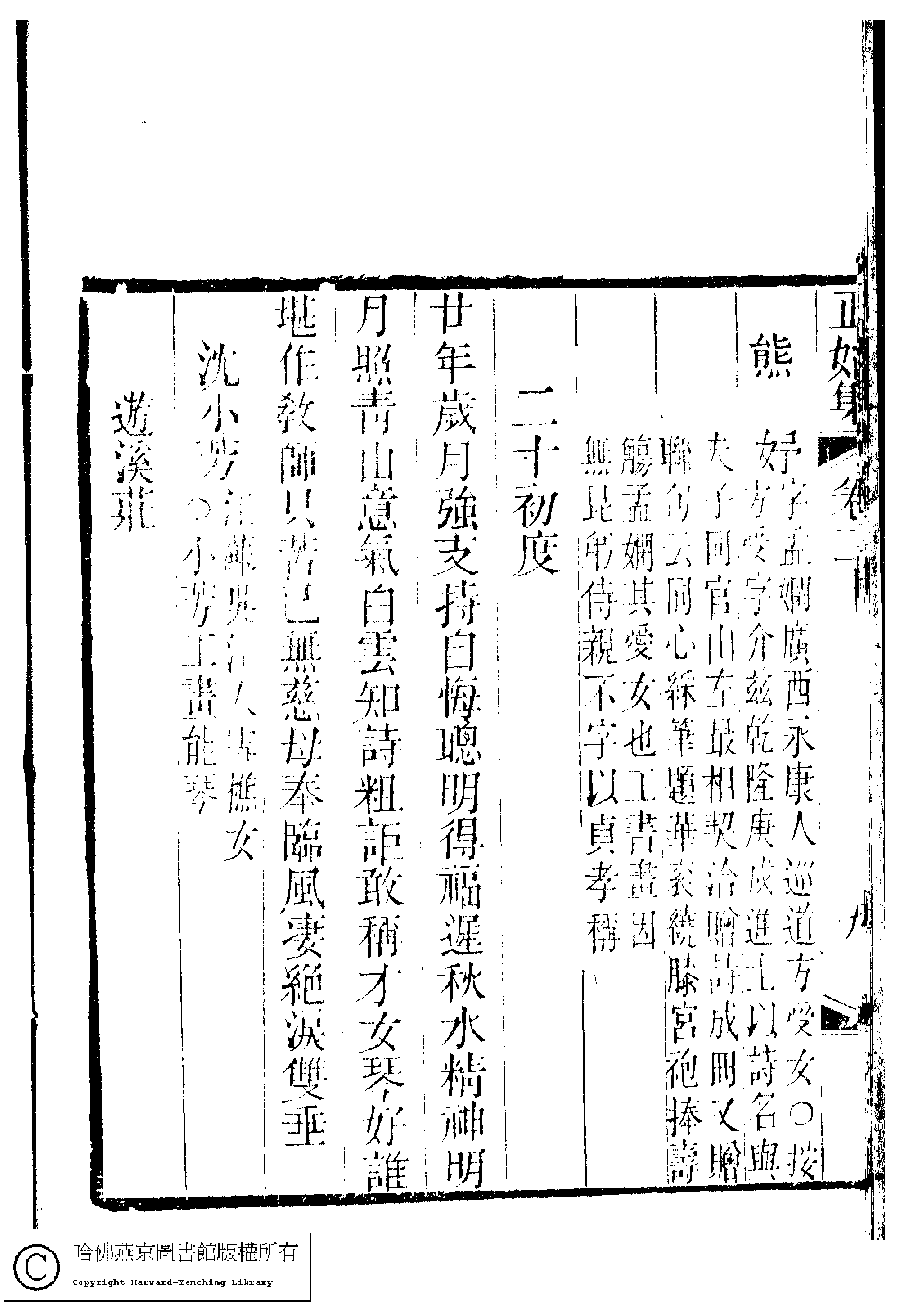 正始集 卷二十 九
熊妤
字孟嫻廣西永康人巡道方受女○按
方受字介茲乾隆庚戌進士以詩名與
夫子同官山左最相契洽贈詩成冊又贈
聯句云同心綵筆題華袞繞膝宮袍捧壽
觴孟嫻其愛女也工書畫因
無昆弟侍親不字以貞孝稱
二十初度
廿年歲月強支持自悔聰明得福遲秋水精神明
月照青山意氣白雲知詩粗詎敢稱才女琴好誰
堪作敎師只苦已無慈母奉臨風凄絕淚雙垂
沈小芳
江蘇吳江人樵女
○小芳工畫能琴
遊溪莊
哈佛燕京圖書館版權所有
Copyright Harvard-Yenching Library